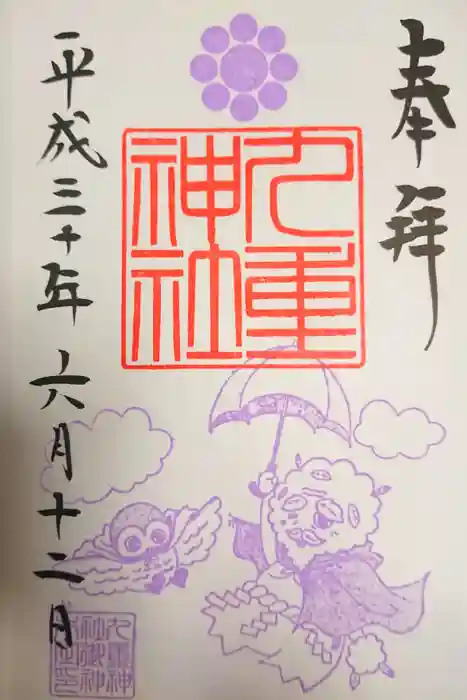 奉拝
九重
神社
平成三十年 六月十二日